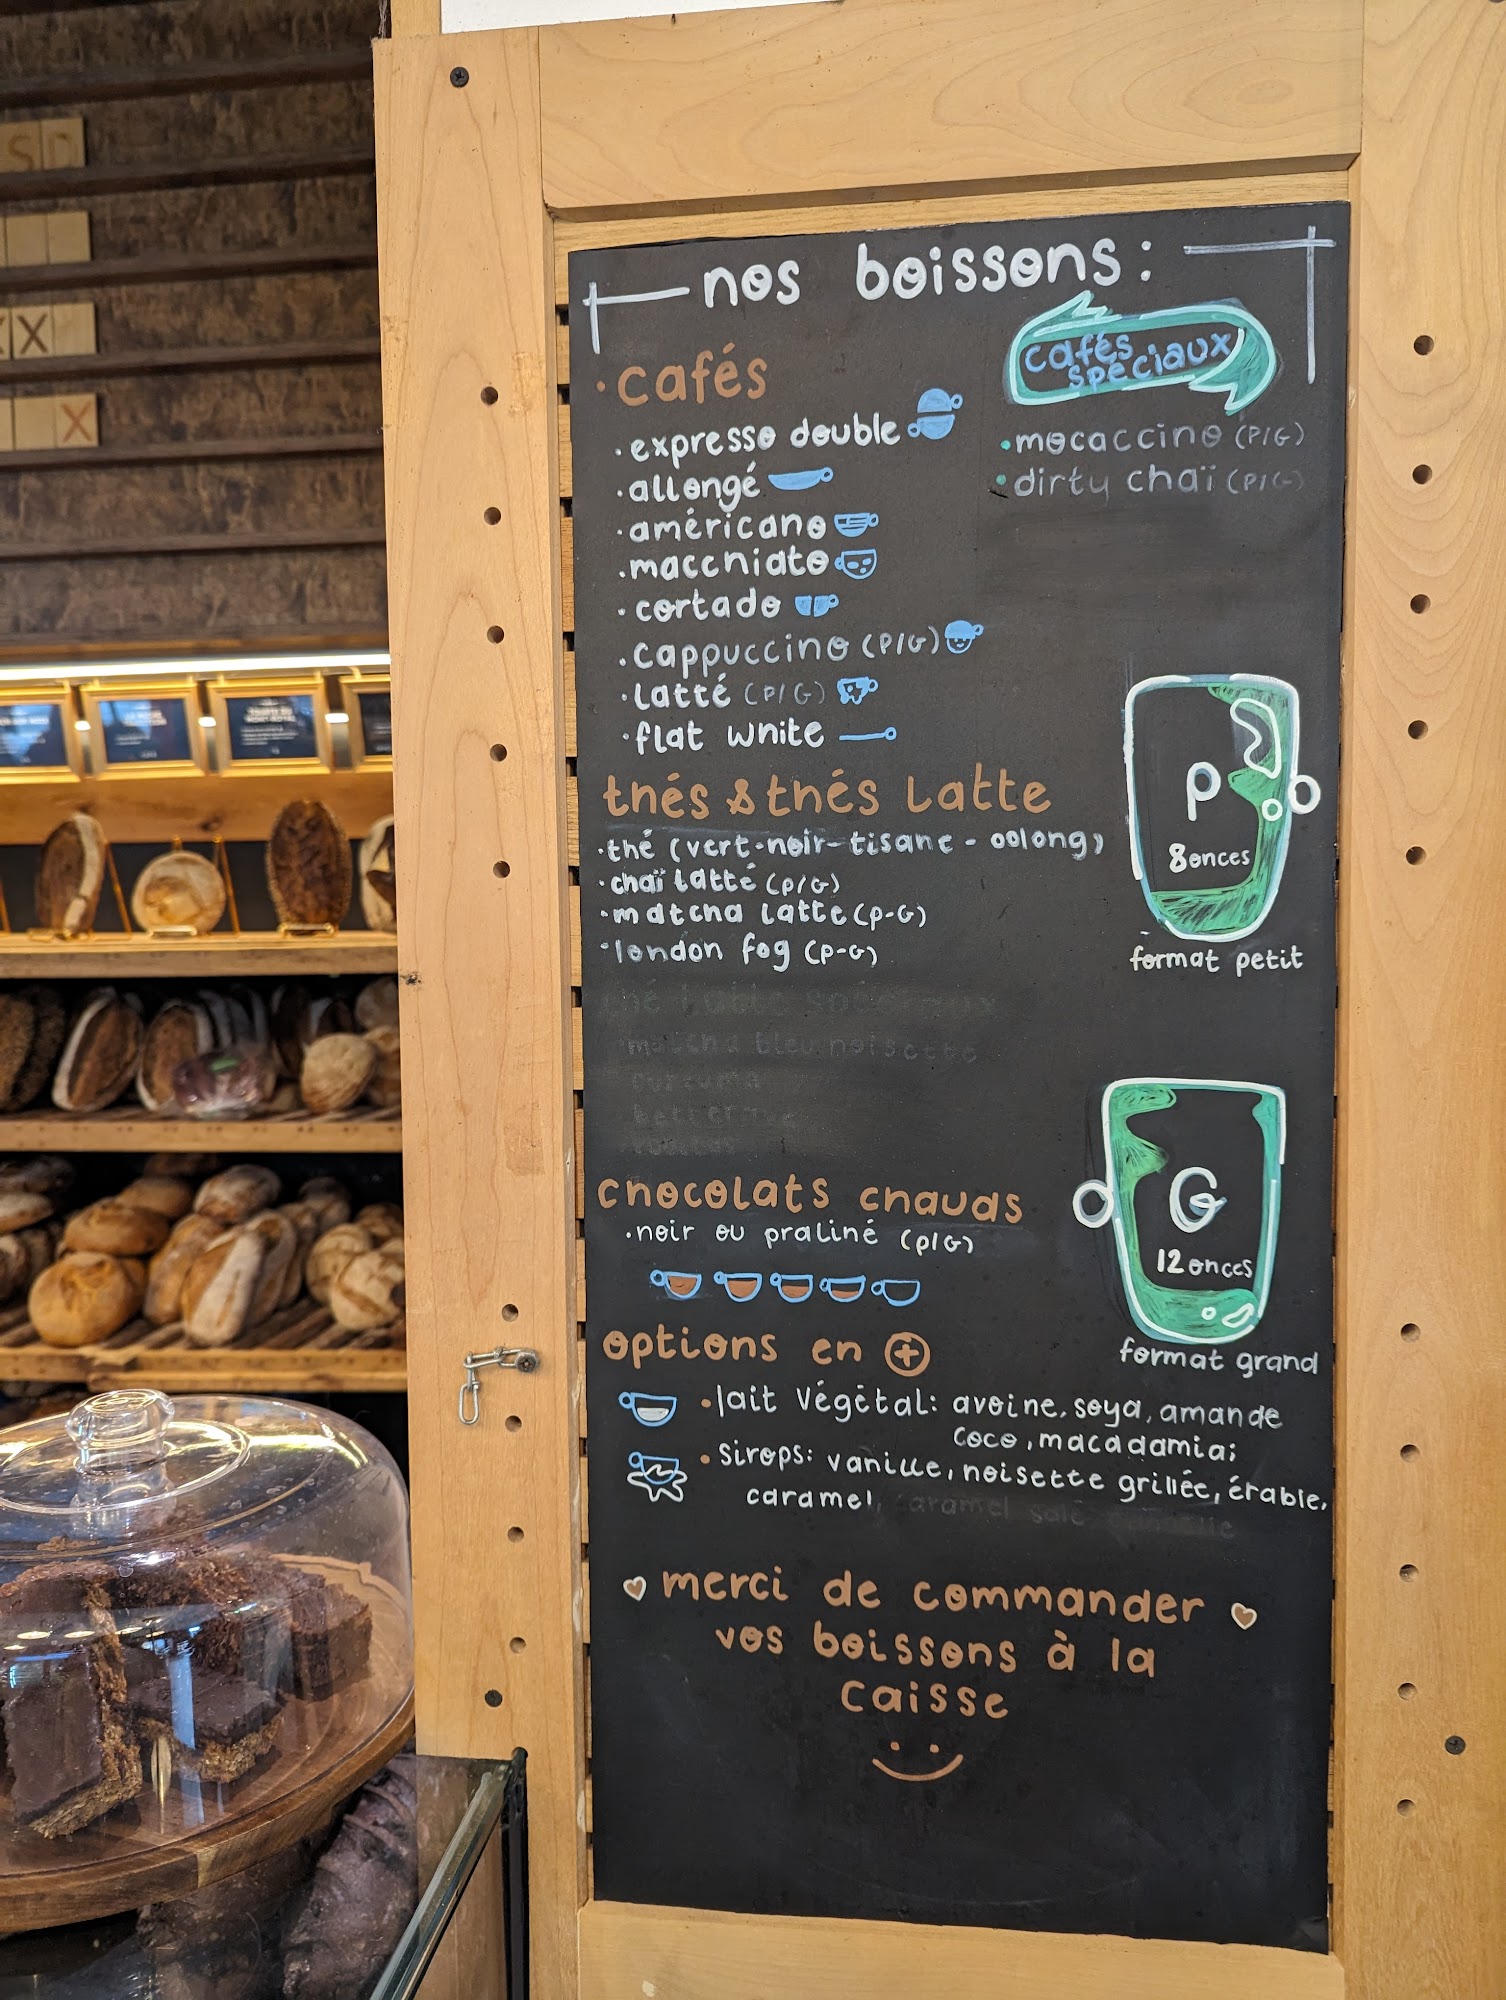 nos boissons:
• cafés
• expresso double
• allongé
• américano
• macchiato
• cortado
• cappuccino (P/G)
• latté (P/G)
• flat white
cafés
spéciaux
• mocaccino (P/G)
• dirty chaï (P/G)
thés & thés latte
• thé (vert-noir-tisane-oolong)
• chaï latté (P/G)
• matcha latte (P-G)
• london fog (P-G)
matcha bleu noisette
P
8 onces
format petit
chocolats chauds
• noir ou praliné (P/G)
G
12 onces
format grand
options en +
• lait végétal: avoine, soya, amande
coco, macadamia;
• sirops: vanille, noisette grillée, érable,
caramel, caramel salé
merci de commander
vos boissons à la
caisse